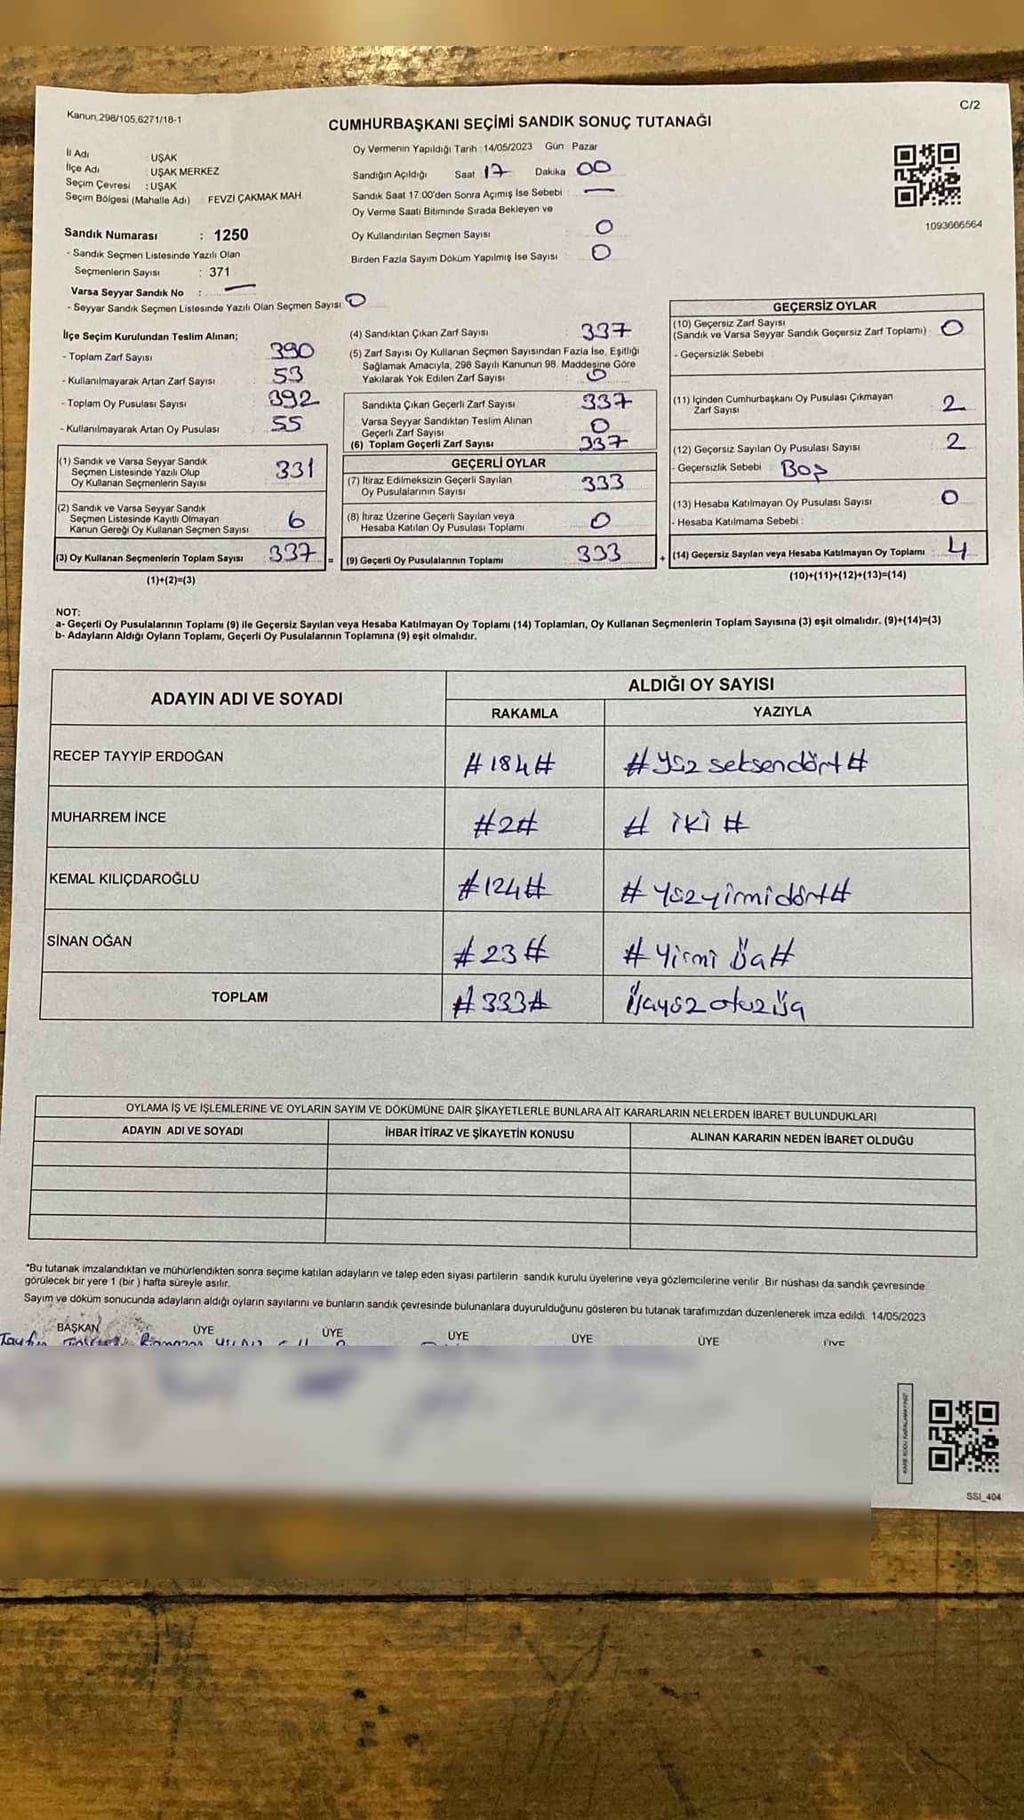 C/2
Kanun,298/105,6271/18-1
CUMHURBAŞKANI SEÇİMİ SANDIK SONUÇ TUTANAĞI
İl Adı : UŞAK
İlçe Adı : UŞAK MERKEZ
Seçim Çevresi : UŞAK
Seçim Bölgesi (Mahalle Adı) FEVZİ ÇAKMAK MAH.
Sandık Numarası : 1250
- Sandık Seçmen Listesinde Yazılı Olan
Seçmenlerin Sayısı : 371
Varsa Seyyar Sandık No : —
- Seyyar Sandık Seçmen Listesinde Yazılı Olan Seçmen Sayısı 0
Oy Vermenin Yapıldığı Tarih : 14/05/2023 Gün : Pazar
Sandığın Açıldığı Saat 17 Dakika 00
Sandık Saat 17:00'den Sonra Açımış İse Sebebi : —
Oy Verme Saati Bitiminde Sırada Bekleyen ve
Oy Kullandırılan Seçmen Sayısı 0
Birden Fazla Sayım Döküm Yapılmış İse Sayısı : 0
1093666564
İlçe Seçim Kurulundan Teslim Alınan;
- Toplam Zarf Sayısı : 390
- Kullanılmayarak Artan Zarf Sayısı : 53
- Toplam Oy Pusulası Sayısı : 392
- Kullanılmayarak Artan Oy Pusulası : 55
(1) Sandık ve Varsa Seyyar Sandık
Seçmen Listesinde Yazılı Olup
Oy Kullanan Seçmenlerin Sayısı 331
(2) Sandık ve Varsa Seyyar Sandık
Seçmen Listesinde Kayıtlı Olmayan
Kanun Gereği Oy Kullanan Seçmen Sayısı 6
(3) Oy Kullanan Seçmenlerin Toplam Sayısı 337 =
(1)+(2)=(3)
(4) Sandıktan Çıkan Zarf Sayısı 337
(5) Zarf Sayısı Oy Kullanan Seçmen Sayısından Fazla İse, Eşitliği
Sağlamak Amacıyla, 298 Sayılı Kanunun 98. Maddesine Göre
Yakılarak Yok Edilen Zarf Sayısı : 0
Sandıkta Çıkan Geçerli Zarf Sayısı : 337
Varsa Seyyar Sandıktan Teslim Alınan
Geçerli Zarf Sayısı : 0
(6) Toplam Geçerli Zarf Sayısı 337
GEÇERLİ OYLAR
(7) İtiraz Edilmeksizin Geçerli Sayılan
Oy Pusulalarının Sayısı 333
(8) İtiraz Üzerine Geçerli Sayılan veya
Hesaba Katılan Oy Pusulası Toplamı 0
(9) Geçerli Oy Pusulalarının Toplamı 333 +
GEÇERSİZ OYLAR
(10) Geçersiz Zarf Sayısı
(Sandık ve Varsa Seyyar Sandık Geçersiz Zarf Toplamı) : 0
- Geçersizlik Sebebi
(11) İçinden Cumhurbaşkanı Oy Pusulası Çıkmayan
Zarf Sayısı 2
(12) Geçersiz Sayılan Oy Pusulası Sayısı 2
- Geçersizlik Sebebi Boş
(13) Hesaba Katılmayan Oy Pusulası Sayısı 0
- Hesaba Katılmama Sebebi :
(14) Geçersiz Sayılan veya Hesaba Katılmayan Oy Toplamı : 4
(10)+(11)+(12)+(13)=(14)
NOT:
a- Geçerli Oy Pusulalarının Toplamı (9) ile Geçersiz Sayılan veya Hesaba Katılmayan Oy Toplamı (14) Toplamları, Oy Kullanan Seçmenlerin Toplam Sayısına (3) eşit olmalıdır. (9)+(14)=(3)
b- Adayların Aldığı Oyların Toplamı, Geçerli Oy Pusulalarının Toplamına (9) eşit olmalıdır.
ADAYIN ADI VE SOYADI
ALDIĞI OY SAYISI
RAKAMLA YAZIYLA
RECEP TAYYİP ERDOĞAN #184# #Yüz seksendört#
MUHARREM İNCE #2# # iKi #
KEMAL KILIÇDAROĞLU #124# # Yüzyirmidört#
SİNAN OĞAN #23# # Yirmi üç#
TOPLAM #333# üçyüz otuz üç
OYLAMA İŞ VE İŞLEMLERİNE VE OYLARIN SAYIM VE DÖKÜMÜNE DAİR ŞİKAYETLERLE BUNLARA AİT KARARLARIN NELERDEN İBARET BULUNDUKLARI
ADAYIN ADI VE SOYADI İHBAR İTİRAZ VE ŞİKAYETİN KONUSU ALINAN KARARIN NEDEN İBARET OLDUĞU
*Bu tutanak imzalandıktan ve mühürlendikten sonra seçime katılan adayların ve talep eden siyasi partilerin sandık kurulu üyelerine veya gözlemcilerine verilir. Bir nüshası da sandık çevresinde
görülecek bir yere 1 (bir ) hafta süreyle asılır.
Sayım ve döküm sonucunda adayların aldığı oyların sayılarını ve bunların sandık çevresinde bulunanlara duyurulduğunu gösteren bu tutanak tarafımızdan düzenlenerek imza edildi. 14/05/2023
BAŞKAN ÜYE ÜYE ÜYE ÜYE ÜYE ÜYE
SSI_404